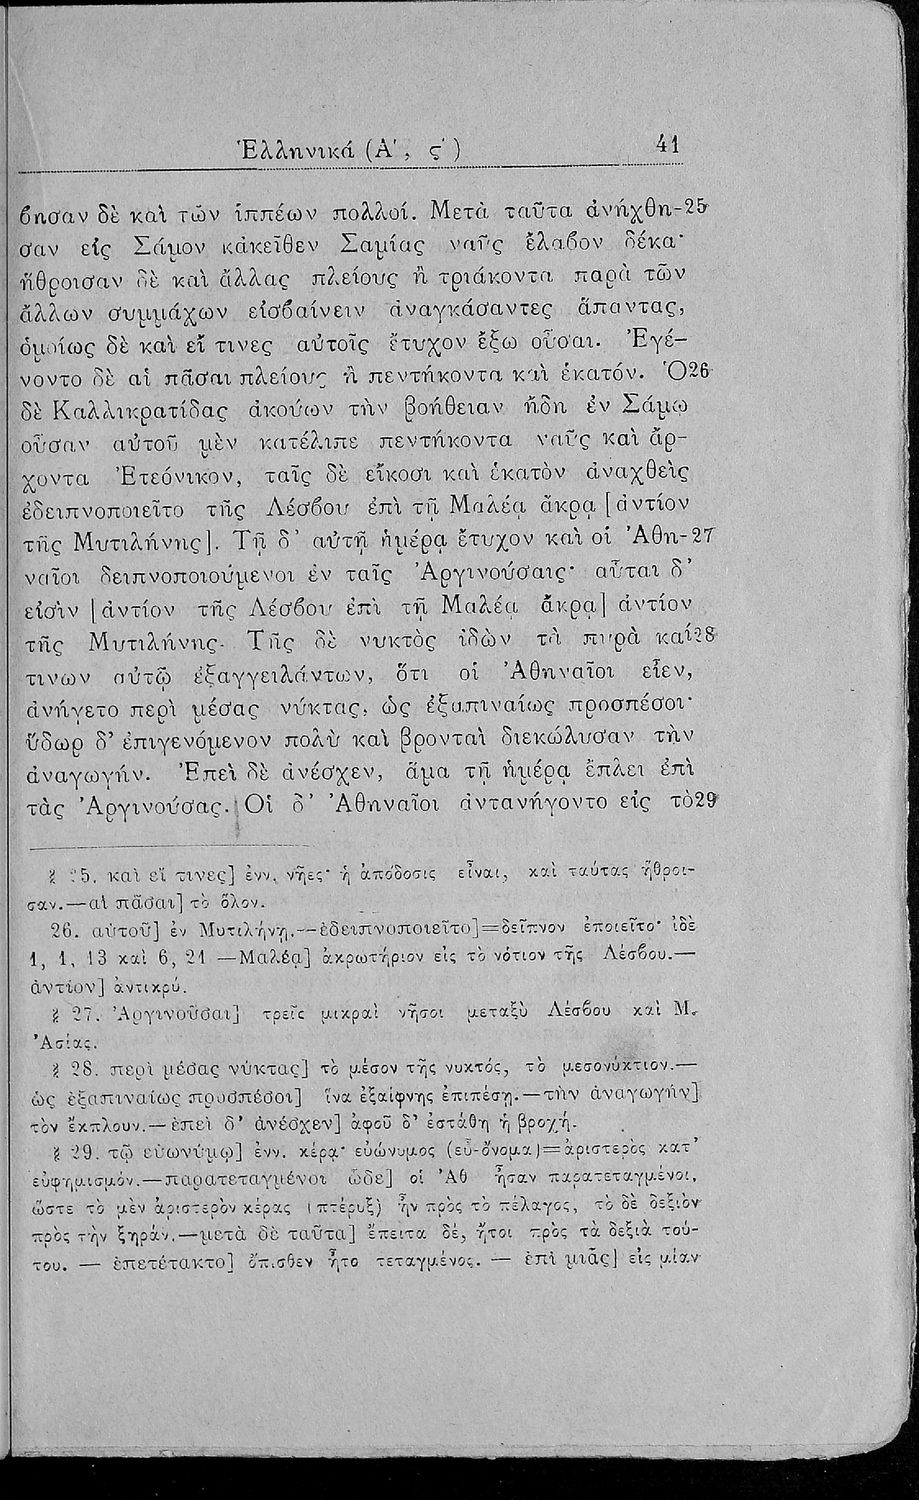 Ἑλληνικά (Α΄, ς΄) 41
βησαν δὲ καὶ τῶν ἱππέων πολλοί. Μετὰ ταῦτα ἀνήχθη-25
σαν εἰς Σάμον κἀκεῖθεν Σαμίας ναῦς ἔλαβον δέκα·
ἤθροισαν δὲ καὶ ἄλλας πλείους ἢ τριάκοντα παρὰ τῶν
ἄλλων συμμάχων εἰσβαίνειν ἀναγκάσαντες ἅπαντας,
ὁμοίως δὲ καὶ εἴ τινες αὐτοῖς ἔτυχον ἔξω οὖσαι. Ἐγέ-
νοντο δὲ αἱ πᾶσαι πλείους ἢ πεντήκοντα καὶ ἑκατόν. Ὁ26
δὲ Καλλικρατίδας ἀκούων τὴν βοήθειαν ἤδη ἐν Σάμῳ
οὖσαν αὐτοῦ μὲν κατέλιπε πεντήκοντα ναῦς καὶ ἄρ-
χοντα Ἐτεόνικον, ταῖς δὲ εἴκοσι καὶ ἑκατὸν ἀναχθεὶς
ἐδειπνοποιεῖτο τῆς Λέσβου ἐπὶ τῇ Μαλέᾳ ἄκρᾳ [ἀντίον
τῆς Μυτιλήνης]. Τῇ δ᾽ αὐτῇ ἡμέρᾳ ἔτυχον καὶ οἱ Ἀθη-27
ναῖοι δειπνοποιούμενοι ἐν ταῖς Ἀργινούσαις· αὗται δ᾽
εἰσὶν [ἀντίον τῆς Λέσβου ἐπὶ τῇ Μαλέᾳ ἄκρᾳ] ἀντίον
τῆς Μυτιλήνης. Τῆς δὲ νυκτὸς ἰδὼν τὰ πυρὰ καί28
τινων αὐτῷ ἐξαγγειλάντων, ὅτι οἱ Ἀθηναῖοι εἶεν,
ἀνήγετο περὶ μέσας νύκτας, ὡς ἐξαπιναίως προσπέσοι·
ὕδωρ δ᾽ ἐπιγενόμενον πολὺ καὶ βρονταὶ διεκώλυσαν τὴν
ἀναγωγήν. Ἐπεὶ δὲ ἀνέσχεν, ἅμα τῇ ἡμέρᾳ ἔπλει ἐπὶ
τὰς Ἀργινούσας. Οἱ δ᾽ Ἀθηναῖοι ἀντανήγοντο εἰς τὸ29
§ 25. καὶ εἴ τινες] ἐνν. νῆες· ἡ ἀπόδοσις εἶναι, καὶ ταύτας ἤθροι-
σαν.—αἱ πᾶσαι] τὸ ὅλον.
26. αὐτοῦ] ἐν Μυτιλήνῃ.—ἐδειπνοποιεῖτο]=δεῖπνον ἐποιεῖτο· ἰδὲ
1, 1, 13 καὶ 6, 21 —Μαλέᾳ] ἀκρωτήριον εἰς τὸ νότιον τῆς Λέσβου.—
ἀντίον] ἀντικρύ.
§ 27. Ἀργινοῦσαι] τρεῖς μικραὶ νῆσοι μεταξὺ Λέσβου καὶ Μ.
Ἀσίας.
§ 28. περὶ μέσας νύκτας] τὸ μέσον τῆς νυκτός, τὸ μεσονύκτιον.—
ὡς ἐξαπιναίως προσπέσοι] ἵνα ἐξαίφνης ἐπιπέσῃ.—τὴν ἀναγωγήν]
τὸν ἔκπλουν.—ἐπεὶ δ᾽ ἀνέσχεν] ἀφοῦ δ᾽ ἐστάθη ἡ βροχή.
§ 29. τῷ εὐωνύμῳ] ἐνν. κέρᾳ· εὐώνυμος (εὖ-ὄνομα)=ἀριστερὸς κατ᾽
εὐφημισμόν.—παρατεταγμένοι ὧδε] οἱ Ἀθ ἦσαν παρατεταγμένοι,
ὥστε τὸ μὲν ἀριστερὸν κέρας (πτέρυξ) ἦν πρὸς τὸ πέλαγος, τὸ δὲ δεξιὸν
πρὸς τὴν ξηράν.—μετὰ δὲ ταῦτα] ἔπειτα δέ, ἤτοι πρὸς τὰ δεξιὰ τού-
του. — ἐπετέτακτο] ὄπισθεν ἦτο τεταγμένος. — ἐπὶ μιᾶς] εἰς μίαν